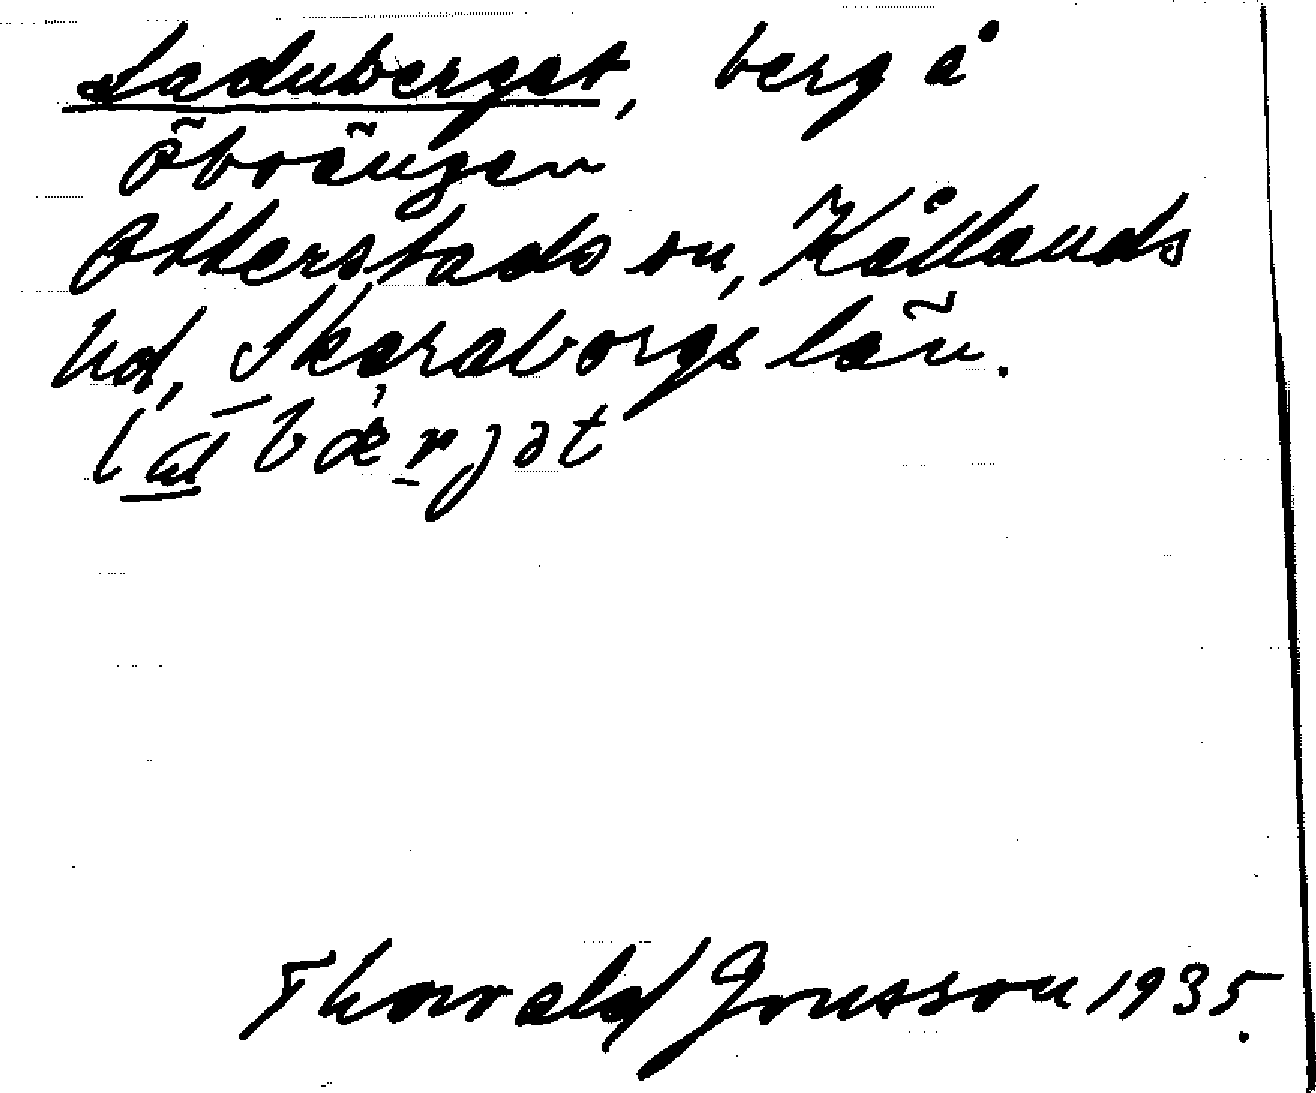 Laduberget, berg å
Öbrängen
Otterstads sn, Kållands
hd, Skaraborgs län.
Thorvald Jonsson 1935.